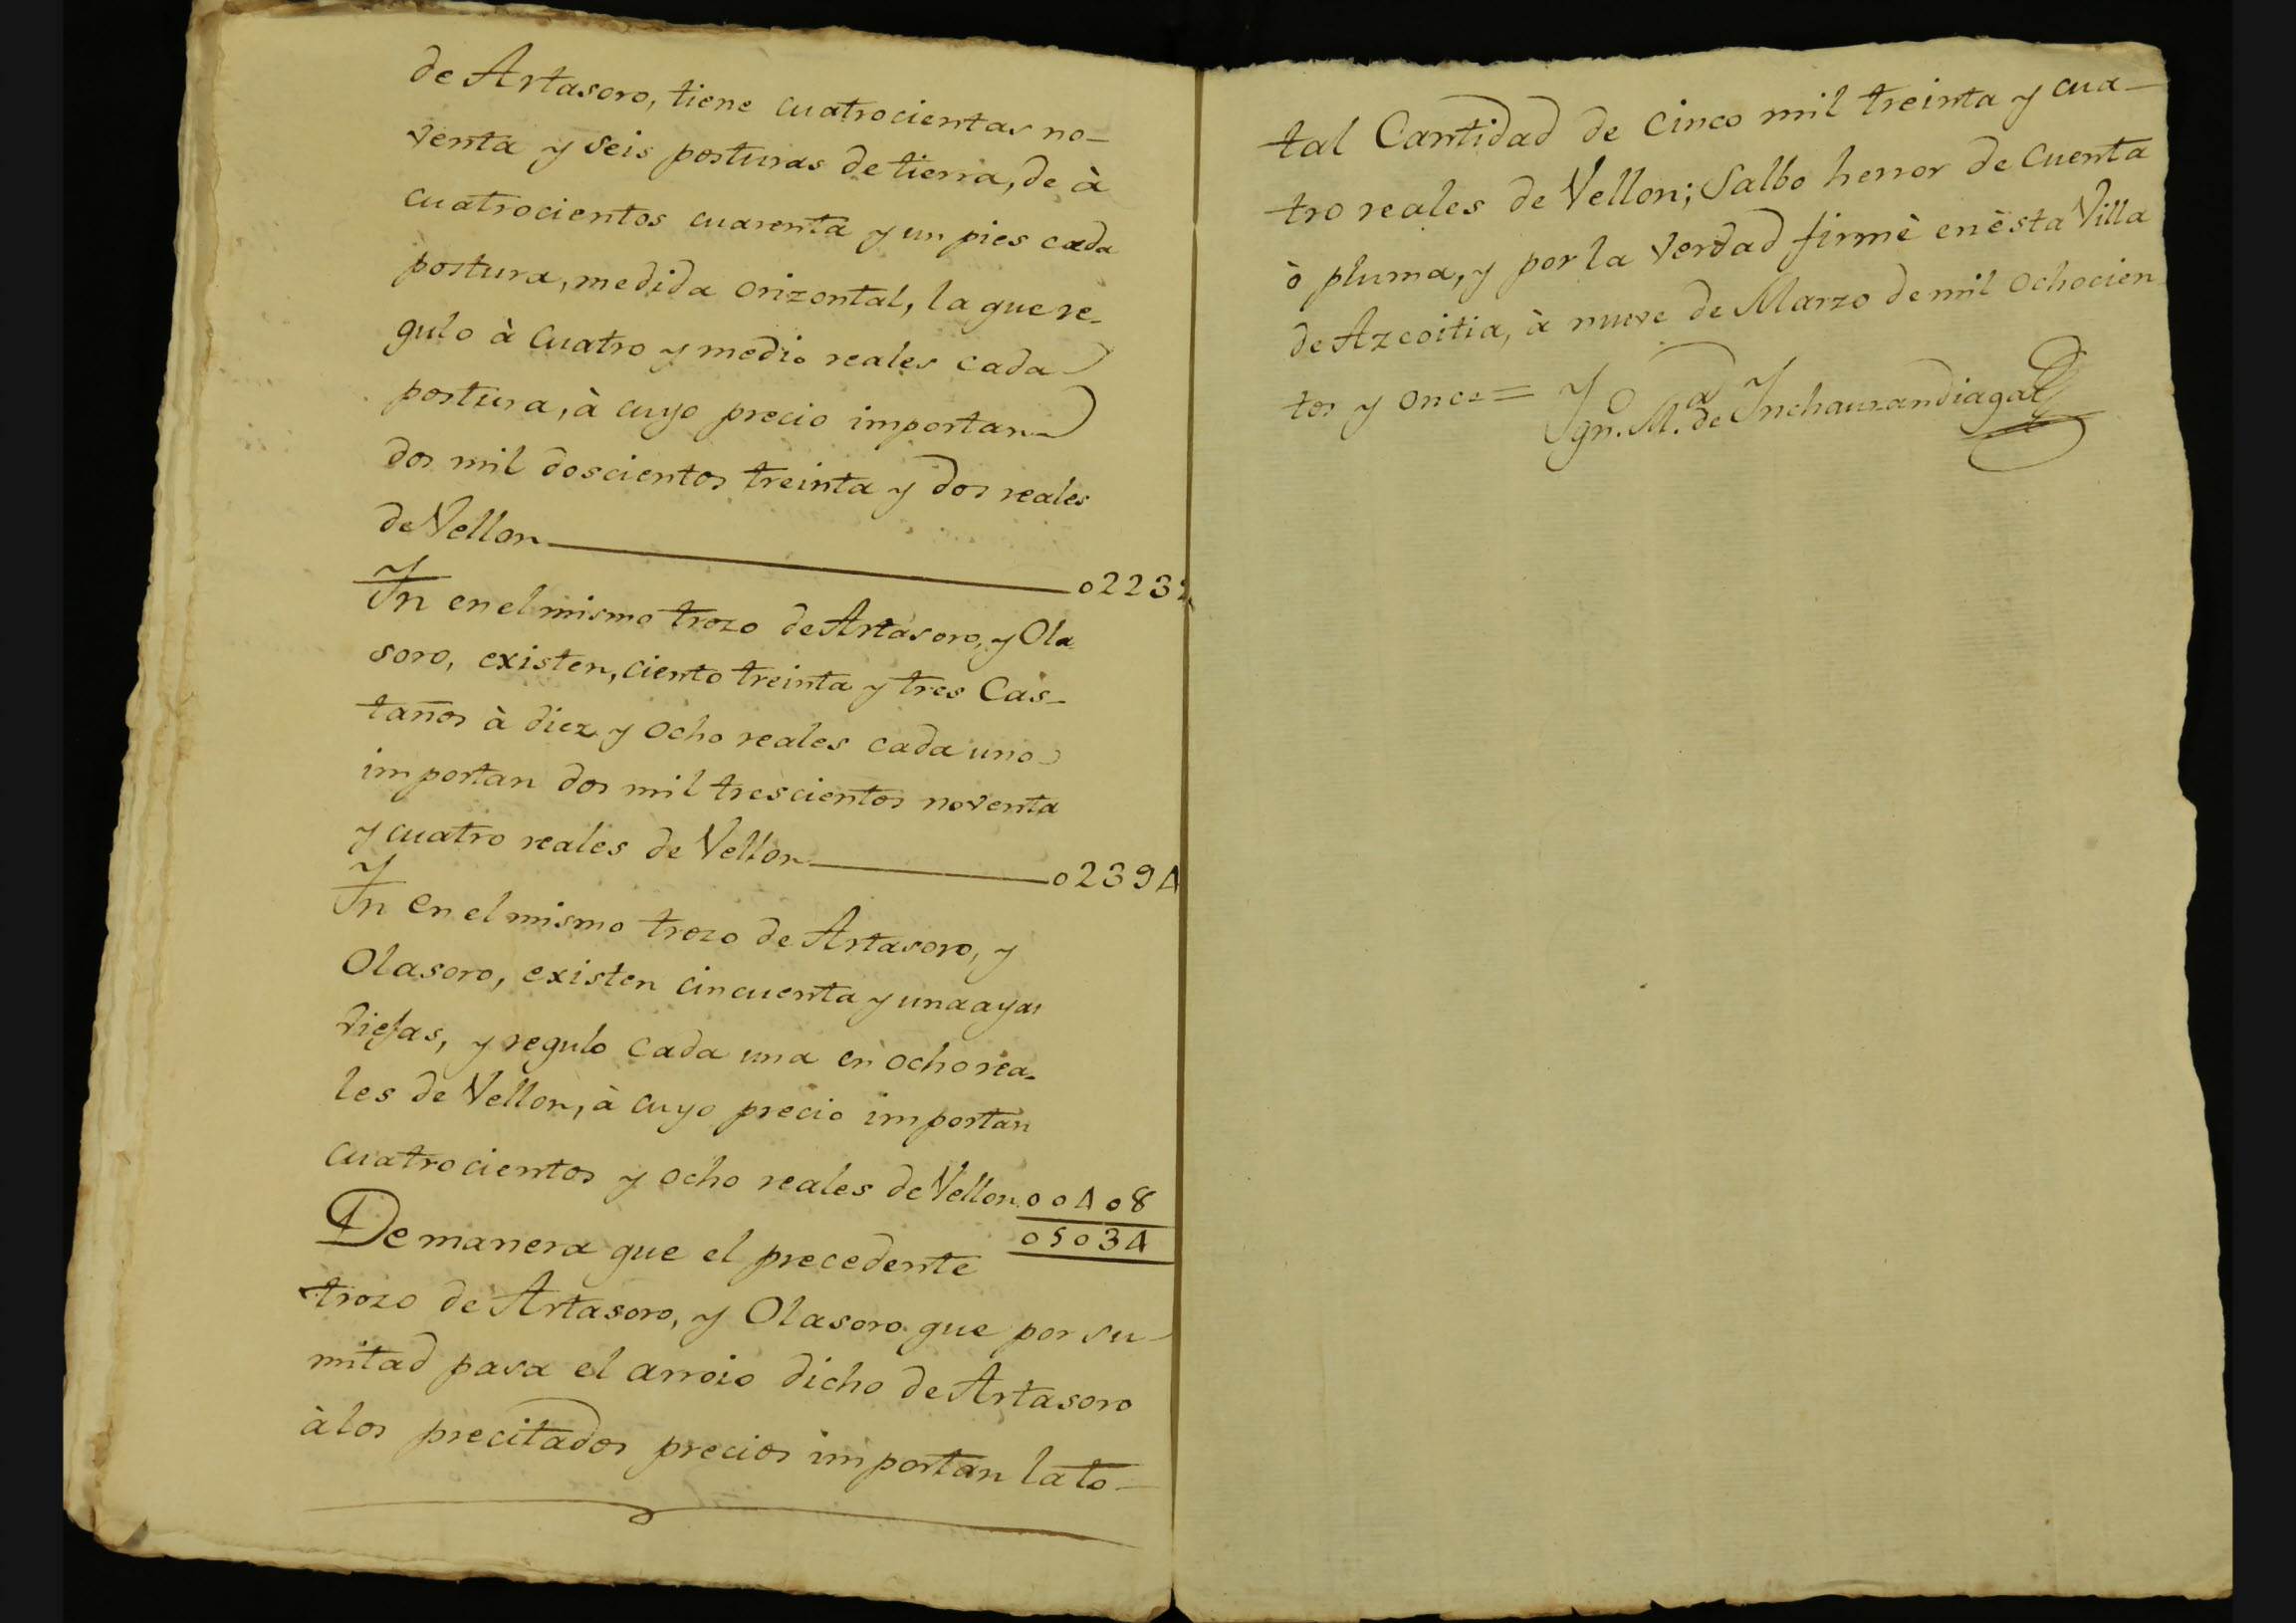 de Artasoro, tiene cuatrocientas no-
venta y seis posturas de tierra, de à
cuatrocientos cuarenta y un pies cada
postura, medida orizontal, la que re-
gulo à cuatro y medio reales cada
postura, à cuyo precio importan
dos mil doscientos treinta y dos reales
de Vellon 02232
Yn en el mismo trozo de Artasoro, y Ola
soro, existen, ciento treinta y tres Cas-
taños à diez y ocho reales cada uno
importan dos mil trescientos noventa
y cuatro reales de Vellon 02394
Yn en el mismo trozo de Artasoro, y
Olasoro, existen cincuenta y una ayas
viejas, y regulo cada una en ocho rea-
les de Vellon, à cuyo precio importan
cuatrocientos y ocho reales de Vellon 00408
05034
De manera que el precedente
trozo de Artasoro, y Olasoro que por su
mitad pasa el arroio dicho de Artasoro
à los precitados precios importan la to-
tal Cantidad de cinco mil treinta y cua-
tro reales de Vellon; Salbo herror de cuenta
ò pluma, y por la verdad firmè en èsta Villa
de Azcoitia, à nueve de Marzo de mil ochocien
tos y once= Ygn.o M.a de Ynchaurandiaga